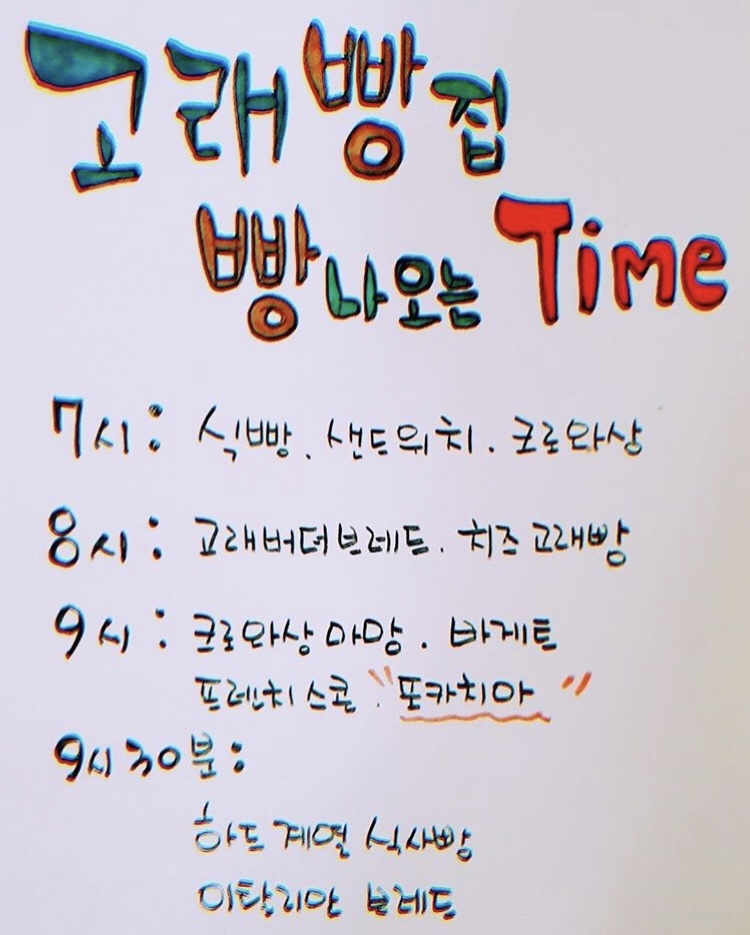 고래빵집
빵나오는 Time
7시: 식빵. 샌드위치. 크로와상
8시: 고래버터브레드. 치즈고래빵
9시: 크로와상아망. 바게트
프렌치스콘. "포카치아"
9시30분:
하드계열 식사빵
이탈리아 브레드